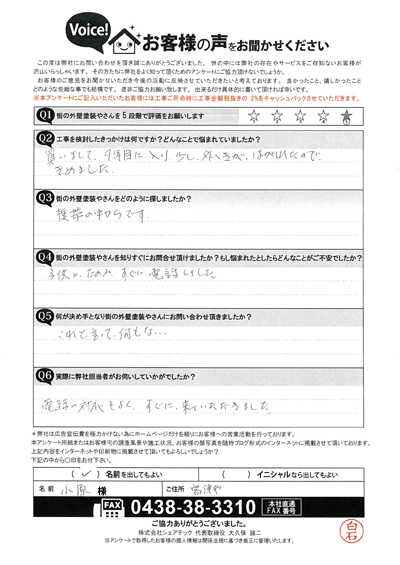 Voice!
お客様の声をお聞かせください
この度は弊社にお問い合わせを頂き誠にありがとうございました。世の中には弊社の存在やサービスをご存知ないお客様が
沢山いらっしゃいます。その方たちに弊社をよく知って頂くためのアンケートにご協力頂けないでしょうか。
お客様のご意見をお聞かせいただき今後の活動に反映させていただきたいと考えております。良かったこと、嬉しかったこと
どのような些細な事でも結構です。是非ご協力お願い致します。出来るだけ具体的に書いて頂ければ幸いです。
※本アンケートにご記入いただいたお客様には工事ご用命時に工事金額税抜きの 2%をキャッシュバックさせていただきます。
Q1 街の外壁塗装やさんを5段階で評価をお願いします
Q2 工事を検討したきっかけは何ですか?どんなことで悩まれていましたか?
買いまして、9年目に入り、少し、外へきが、はがれたので
きめました。
Q3 街の外壁塗装やさんをどのように探しましたか?
携帯の中からです。
Q4 街の外壁塗装やさんを知りすぐにお問合せ頂けましたか?もし悩まれたとしたらどんなことがご不安でしたか?
子供に、たのみ、すぐに、電話しました。
Q5 何が決め手となり街の外壁塗装やさんにお問い合わせ頂きましたか?
これと言って、何もな...
Q6 実際に弊社担当者がお伺いしていかがでしたか?
電話の対応もよく、すぐに、来ていただきました
※弊社は広告宣伝費を極力かけない為にホームページだけを頼りにお客様への営業活動を行っております。
本アンケート用紙またはお客様宅の調査風景や施工状況、お客様の顔写真を随時ブログ形式のインターネットに掲載させて頂いております。
上記内容をインターネットや印刷物に掲載させて頂いてもよろしいでしょうか?
下記の中から〇印をお付け下さい。
( ✓ ) 名前を出してもよい ( ) イニシャルなら出してもよい
名前 小原 様 ご住所
FAX 0438-38-3310 本社直通 FAX番号
ご協力ありがとうございました。
株式会社シェアテック 代表取締役 大久保 誠二
当アンケートで取得したお客様の個人情報は関係法規に基づき厳正に管理いたします。
白石